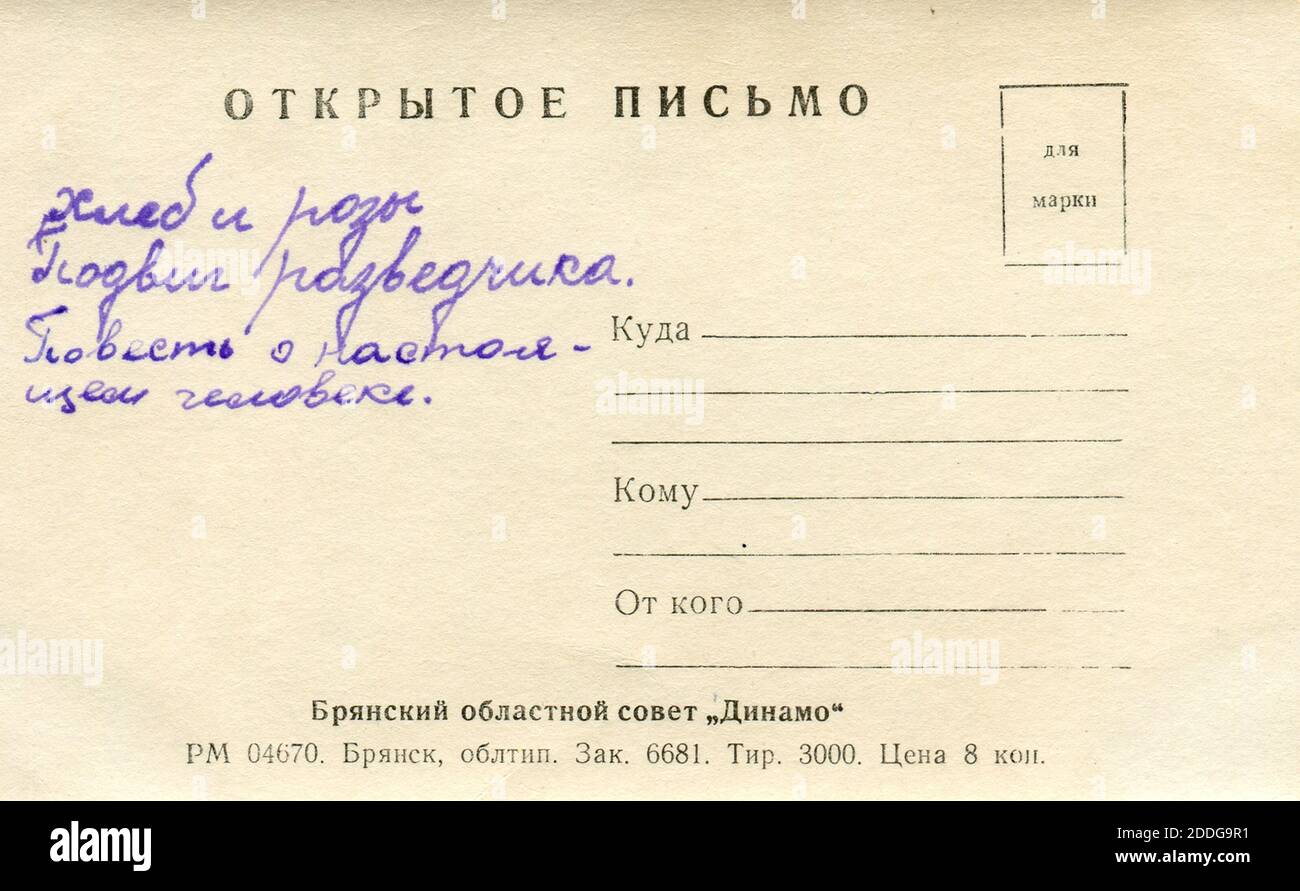 ОТКРЫТОЕ ПИСЬМО
для
марки
Хлеб и розы
Подвиг разведчика.
Повесть о настоя-
щем человеке.
Куда
Кому
От кого
Брянский областной совет „Динамо“
РМ 04670. Брянск, облтип. Зак. 6681. Тир. 3000. Цена 8 коп.
alamy
alamy
Image ID: 2DDG9R1
www.alamy.com